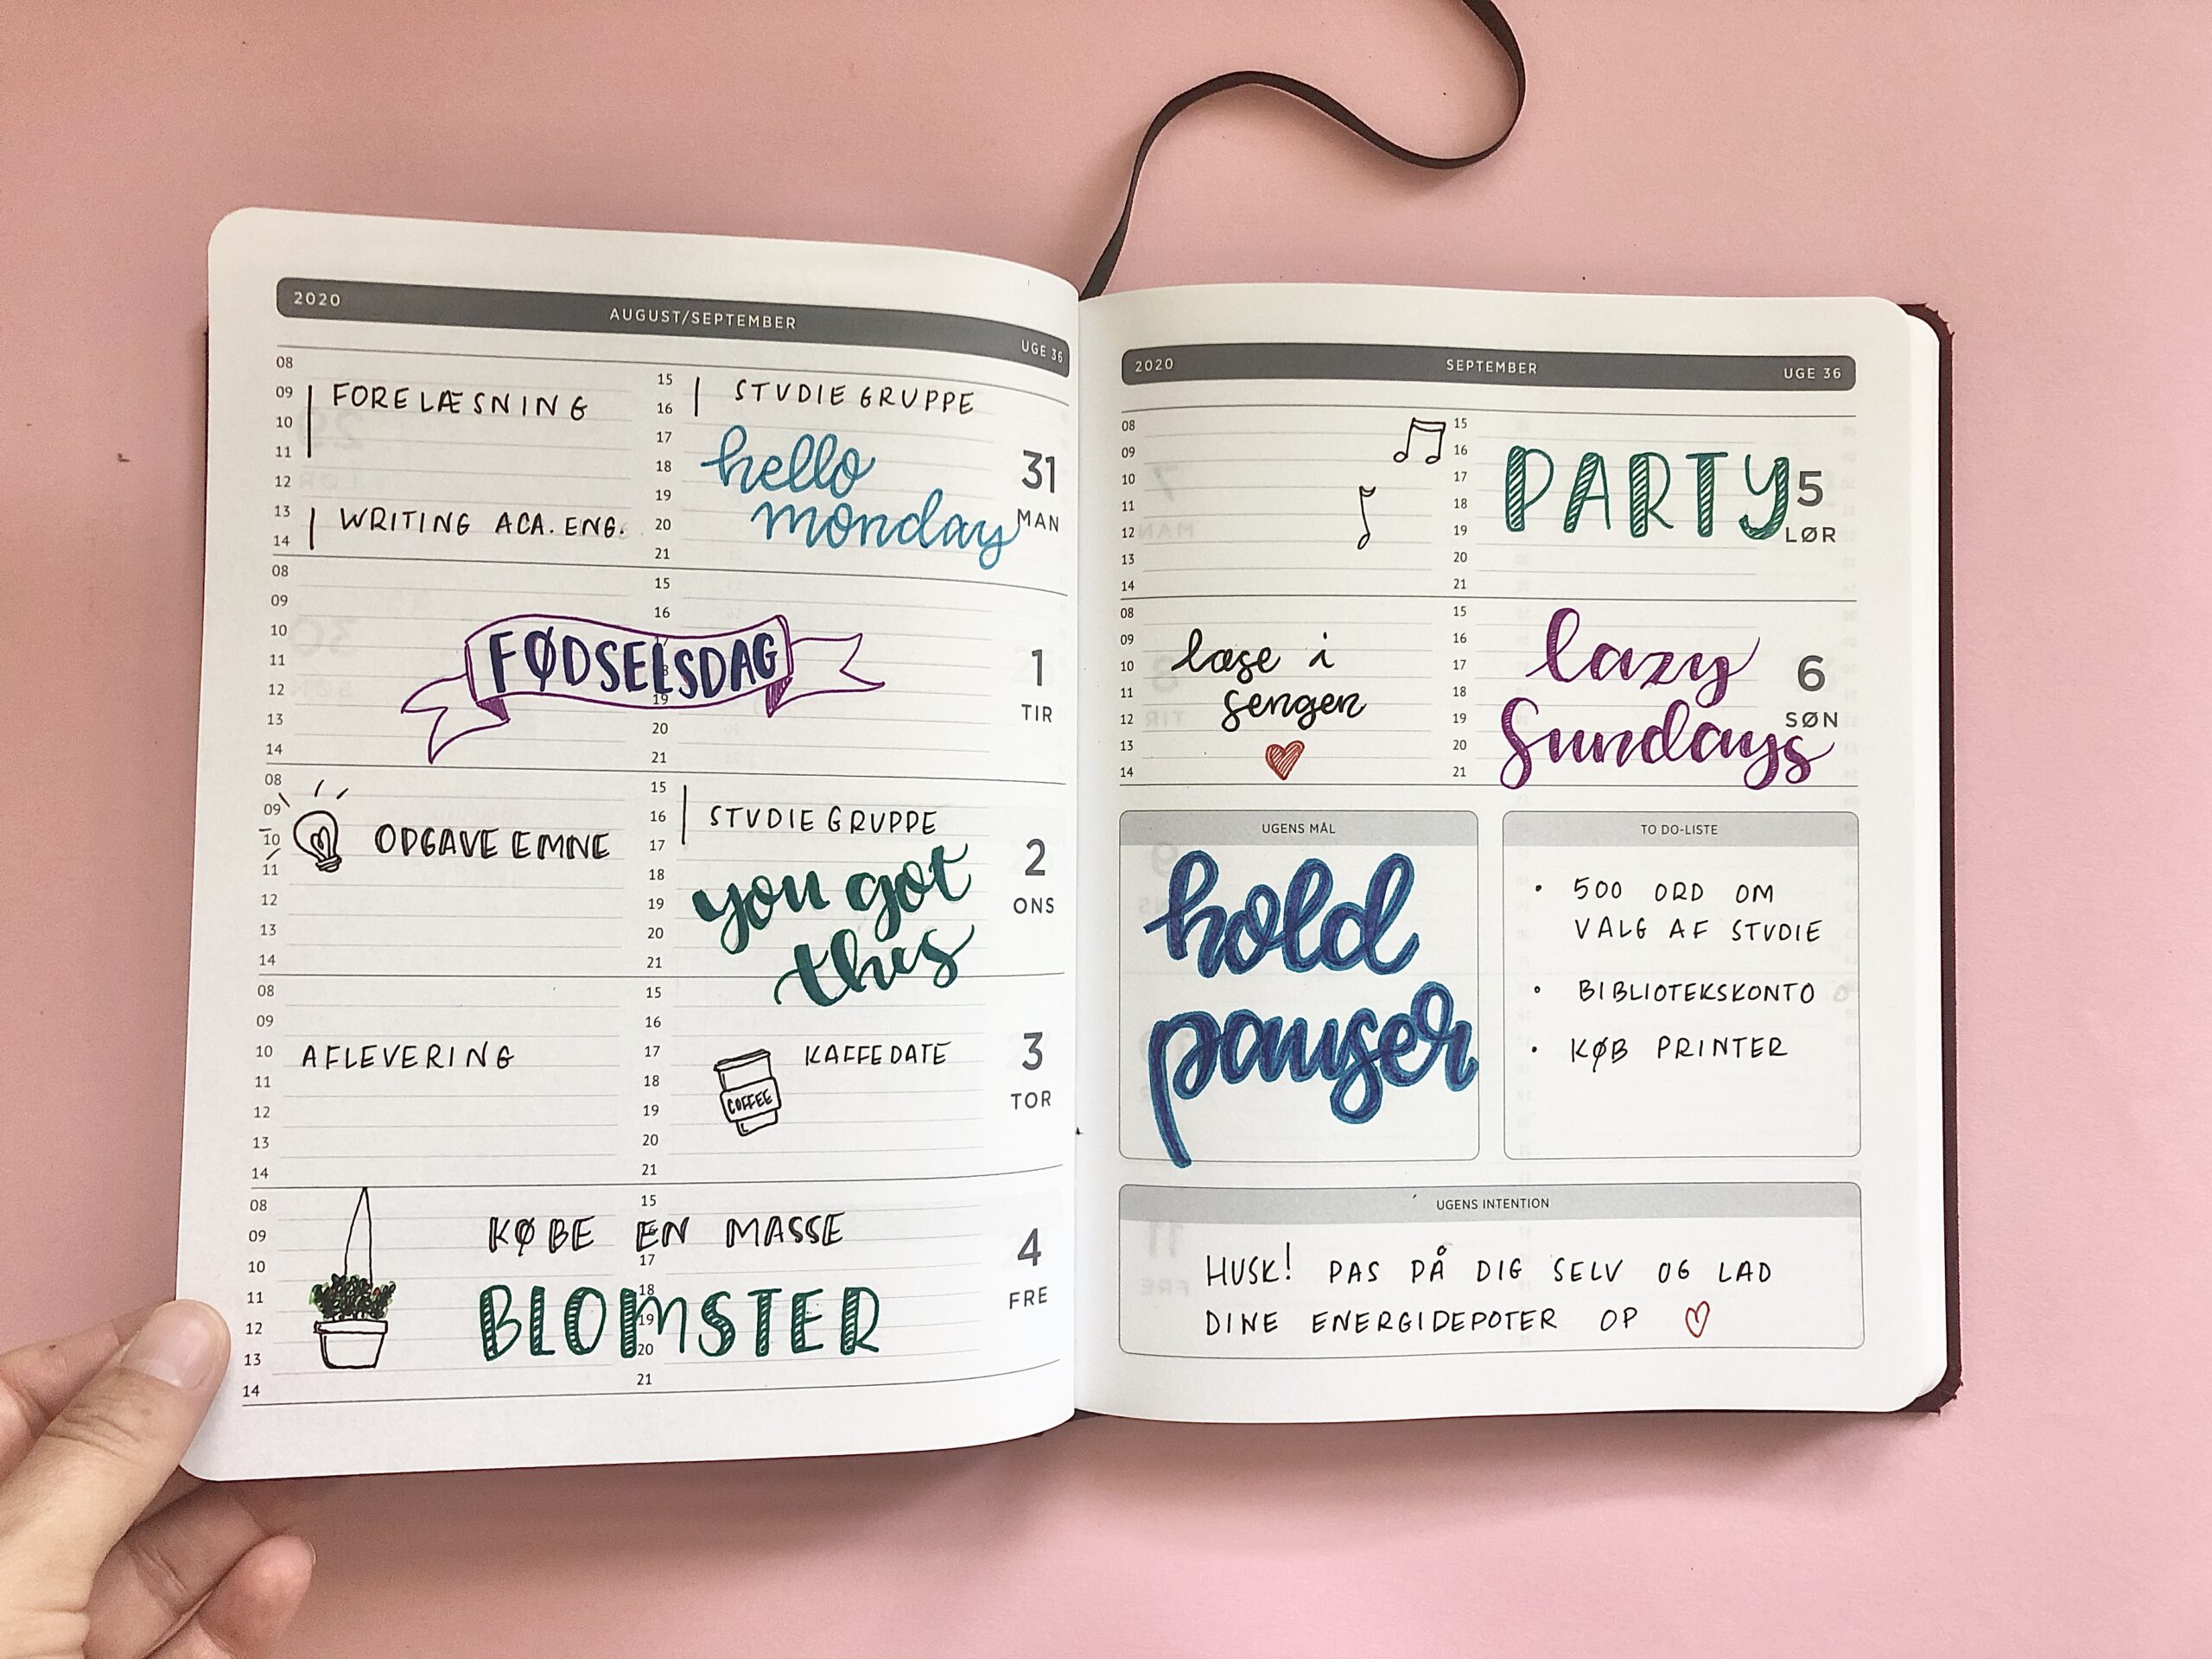 2020 AUGUST/SEPTEMBER UGE 36
08 15
09 FORELÆSNING 16 STUDIEGRUPPE
10 17 hello
11 18 31
12 19 monday
13 WRITING ACA. ENG. 20 MAN
14 21
08 15
09 16
10 17
11 FØDSELSDAG 18 1
12 19
13 20 TIR
14 21
08 15
09 16 STUDIEGRUPPE
10 OPGAVE EMNE 17
11 18 you got 2
12 19 ONS
13 20 this
14 21
08 15
09 16
10 AFLEVERING 17 KAFFEDATE 3
11 18
12 19 COFFEE TOR
13 20
14 21
08 15
09 KØBE EN MASSE 16
10 17 4
11 18
12 BLOMSTER 19 FRE
13 20
14 21
2020 SEPTEMBER UGE 36
08 15
09 16
10 17 PARTY 5
11 18
12 19 LØR
13 20
14 21
08 15
09 16 lazy
10 læse i 17 6
11 sengen 18
12 19 SØN
13 20 Sundays
14 21
UGENS MÅL
hold
pauser
TO DO-LISTE
• 500 ORD OM
VALG AF STUDIE
• BIBLIOTEKSKONTO
• KØB PRINTER
UGENS INTENTION
HUSK! PAS PÅ DIG SELV OG LAD
DINE ENERGIDEPOTER OP